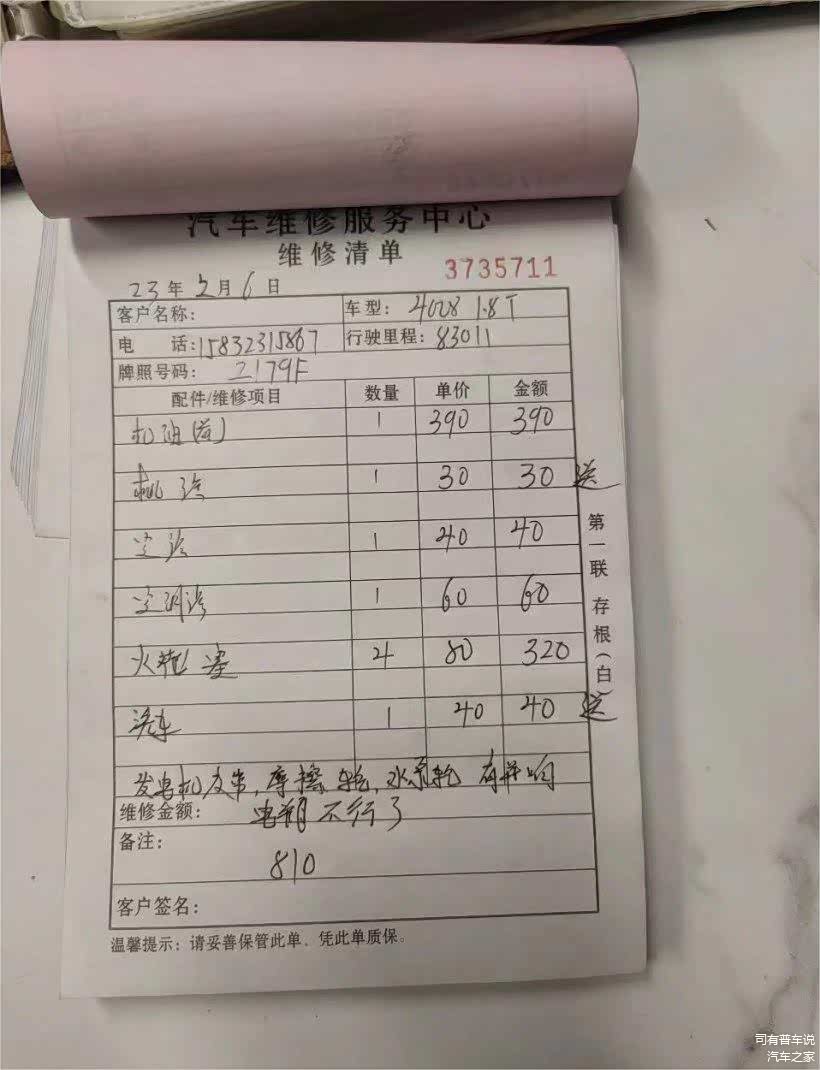 汽车维修服务中心
维修清单
3735711
23年2月6日
客户名称: 车型: 4008 1.8T
电 话:15832315867 行驶里程:83011
牌照号码: 2179F
配件/维修项目 数量 单价 金额
机油 1 390 390
机滤 1 30 30 送
空滤 1 40 40
空调滤 1 60 60
火花塞 4 80 320
洗车 1 40 40 送
发电机皮带,摩擦轮,水泵轮 有异响
维修金额: 电瓶不行了
备注:
810
客户签名:
温馨提示:请妥善保管此单、凭此单质保。
第一联 存根(白)
司有普车说
汽车之家